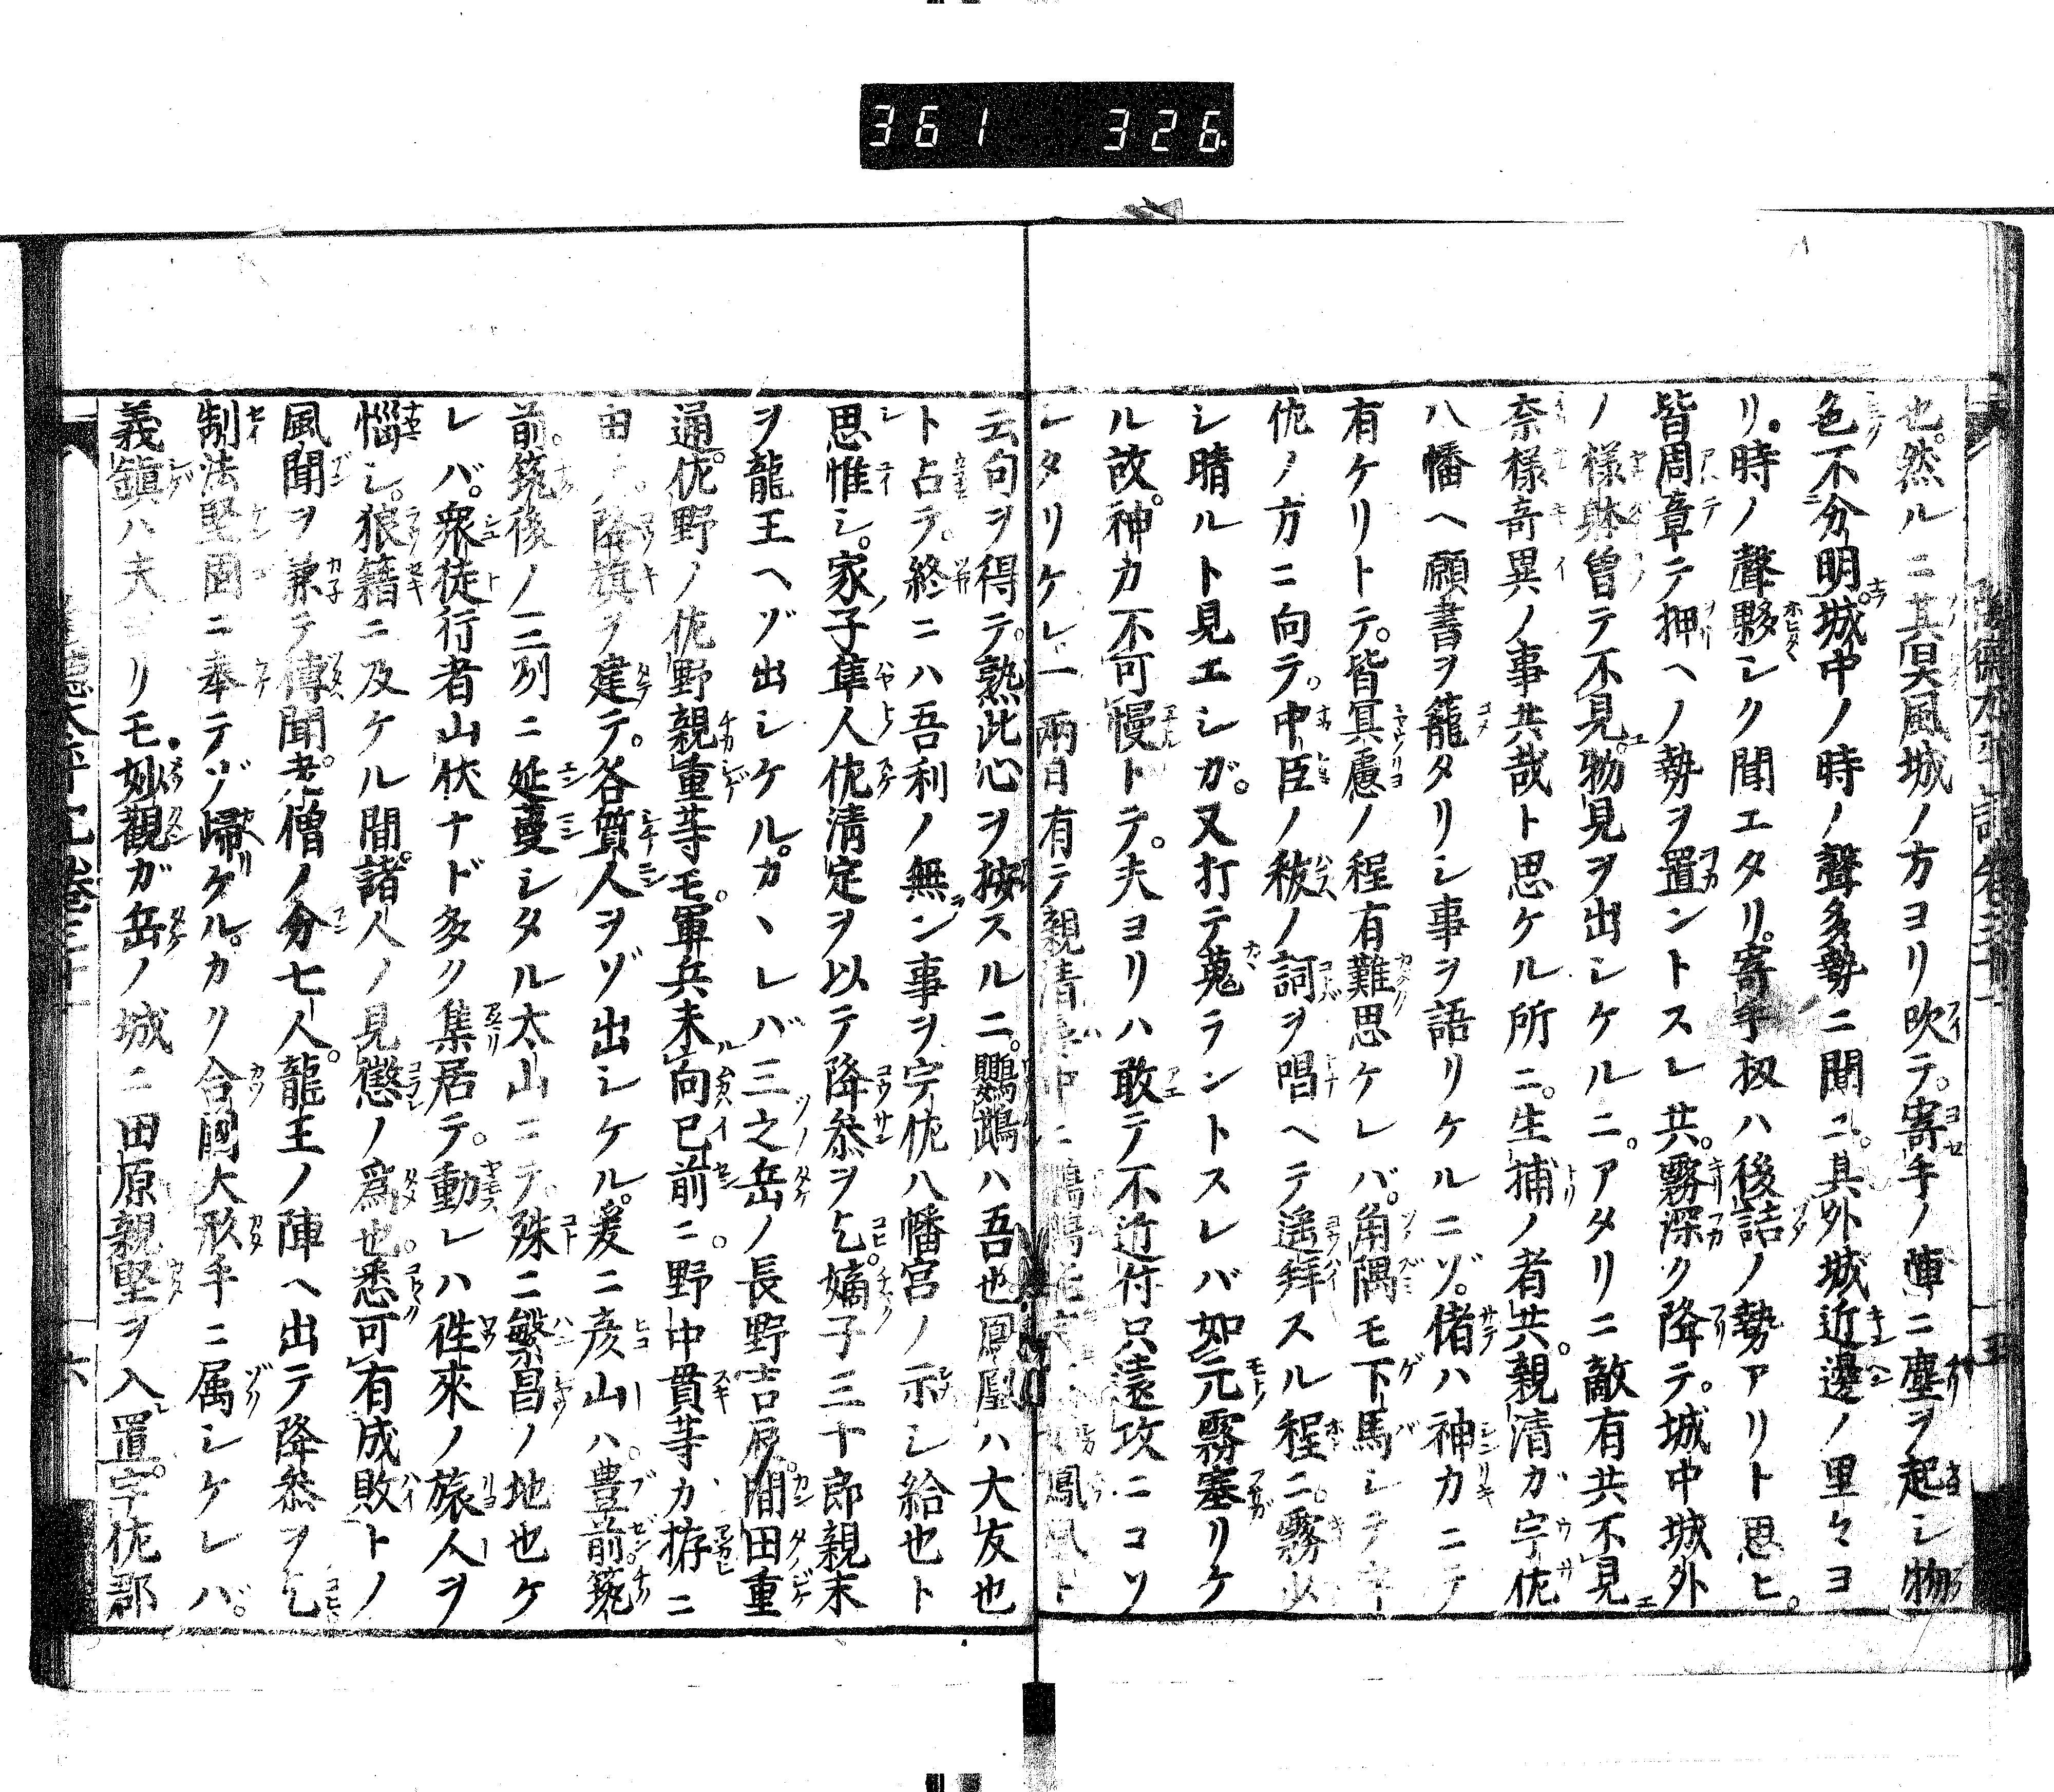 361 326
也。然ルニ其冥風城ノ方ヨリ吹テ。寄手ノ陣ニ塵ヲ起シ物
色不分明。城中ノ時ノ聲多勢ニ聞ニ。其外城近邊ノ里々ヨ
リ。時ノ聲夥シク聞エタリ。寄手扨ハ後詰ノ勢アリト思ヒ。
皆周章テ押ヘノ勢ヲ置ントスレ共。霧深ク降テ。城中城外
ノ様躰曽テ不見。物見ヲ出シケルニ。アタリニ敵有共不見
奈様竒異ノ事共哉ト思ケル所ニ。生捕ノ者共。親清ガ宇佐
八幡ヘ願書ヲ籠タリシ事ヲ語リケルニゾ。偖ハ神力ニテ
有ケリトテ。皆冥慮ノ程有難思ケレバ。角隅モ下馬シテ宇
佐ノ方ニ向テ。中臣ノ秡ノ詞ヲ唱ヘテ遙拜スル程ニ。霧少
シ晴ルト見エシガ。又打テ蒐ラントスレバ如元霧塞リケ
ル故。神力不可慢トテ。夫ヨリハ敢テ不近付只遠攻ニコソ
レタリケレ一兩日有テ親清 中ニ 鳳凰ト
云句ヲ得テ。熟此心ヲ按スルニ。鸚鵡ハ吾也鳳凰ハ大友也
ト占テ。終ニハ吾利ノ無ン事ヲ宇佐八幡宮ノ示シ給也ト
思惟シ。家ノ子隼人佐清定ヲ以テ降参ヲ乞。嫡子三十郎親末
ヲ龍王ヘゾ出シケル。カヽレバ三之岳ノ長野吉辰。間田重
通。佐野ノ佐野親重等モ。軍兵未向已前ニ。野中貫等カ拵ニ
由テ。降旗ヲ建テ。各質人ヲゾ出シケル。爰ニ彦山ハ。豊前筑
前。筑後ノ三州ニ延蔓シタル太山ニテ。殊ニ繁昌ノ地也ケ
レバ。衆徒行者山伏ナド多ク集居テ。動レハ徃來ノ旅人ヲ
惱シ。狼籍ニ及ケル間。諸人ノ見懲ノ爲也。悉可有成敗トノ
風聞ヲ兼テ傳聞。老僧ノ分七人。龍王ノ陣ヘ出テ降参ヲ乞
制法堅固ニ奉テゾ帰ケル。カリ合國大形手ニ属シケレバ。
義鎭ハ夫ヨリモ。妙觀ガ岳ノ城ニ田原親堅ヲ入置。宇佐郡